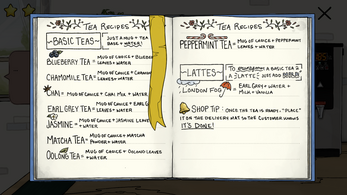 TEA RECIPES
~BASIC TEAS~
JUST A MUG + TEA
BASE + WATER!
BLUEBERRY TEA = MUG OF CHOICE + BLUEBERRY
LEAVES + WATER
CHAMOMILE TEA = MUG OF CHOICE + CHAMOMILE
LEAVES + WATER
CHAI = MUG OF CHOICE + CHAI MIX + WATER
EARL GREY TEA = MUG OF CHOICE + EARL G
LEAVES + WATER
JASMINE = MUG OF CHOICE + JASMINE LEAVES
+ WATER
MATCHA TEA = MUG OF CHOICE + MATCHA
POWDER + WATER
OOLONG TEA = MUG OF CHOICE + OOLONG LEAVES
+ WATER
TEA RECIPES
PEPPERMINT TEA = MUG OF CHOICE + PEPPERMINT
LEAVES + WATER
~LATTES~
TO A BASIC TEA
A LATTE, JUST ADD
LONDON FOG = EARL GREY + WATER +
MILK + VANILLA
SHOP TIP: ONCE THE TEA IS READY, "PLACE"
IT ON THE DELIVERY MAT SO THE CUSTOMER KNOWS
IT'S DONE!